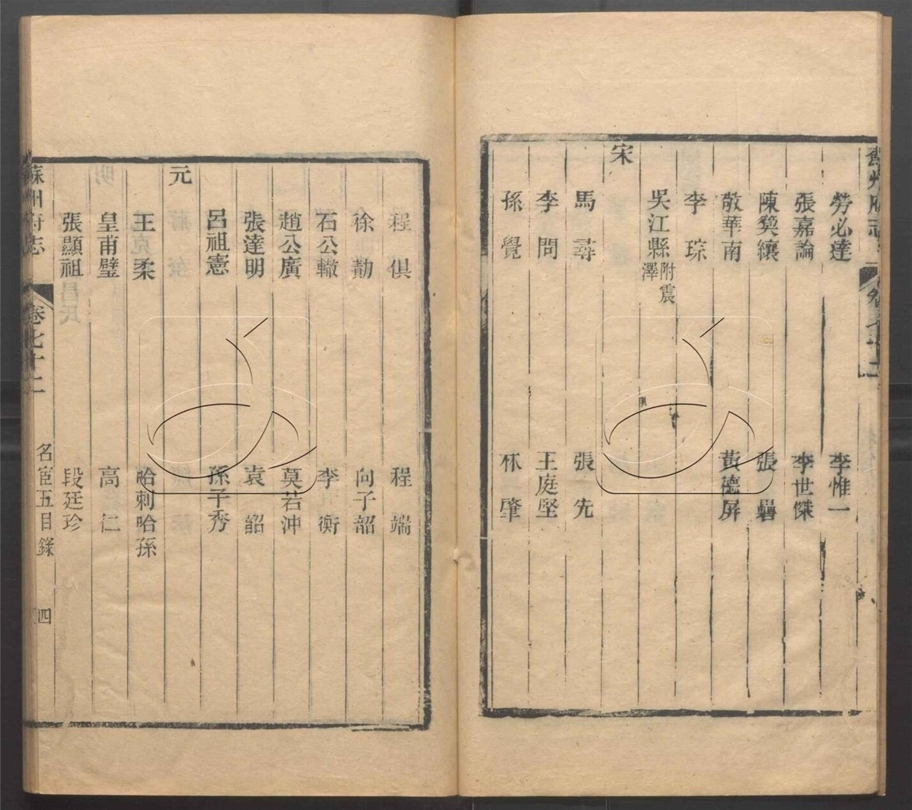 勞必達 李惟一
張嘉論 李世傑
陳奠纕 張曑
敬華南 黃德屏
李琮
吳江縣附震澤
宋
馬尋 張先
李問 王庭堅
孫覺 林肇
程俱 程端
徐勣 向子韶
石公轍 李衡
趙公廣 莫若沖
張達明 袁韶
呂祖憲 孫子秀
元
王柔 哈刺哈孫
皇甫璧 高仁
張顯祖 段廷珍
蘇州府志 卷七十二 名宦五目錄 四